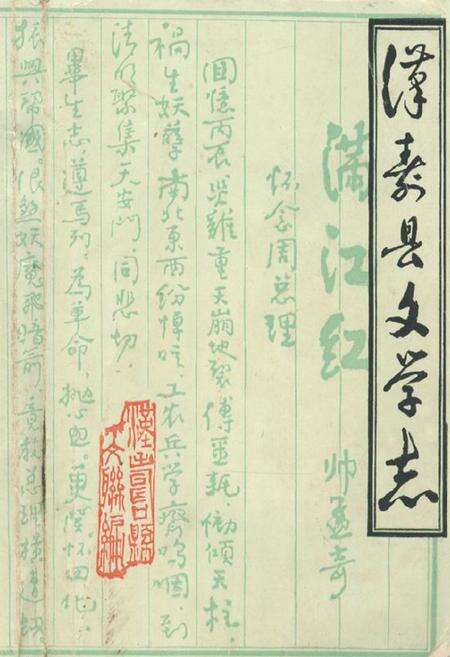 汉寿县文学志
满江红 帅孟奇
怀念周总理
回忆丙辰，灾难重天崩地裂。传噩耗，恸倾天柱，
祸生妖孽。南北东西纷悼唁，工农兵学齐鸣咽。到
清明聚集天安门，同悲切。
毕生志，遵马列。为革命，抛心血。
振兴邦国。恨煞妖魔飞暗箭，竟教总理横遭
汉寿县
文联编